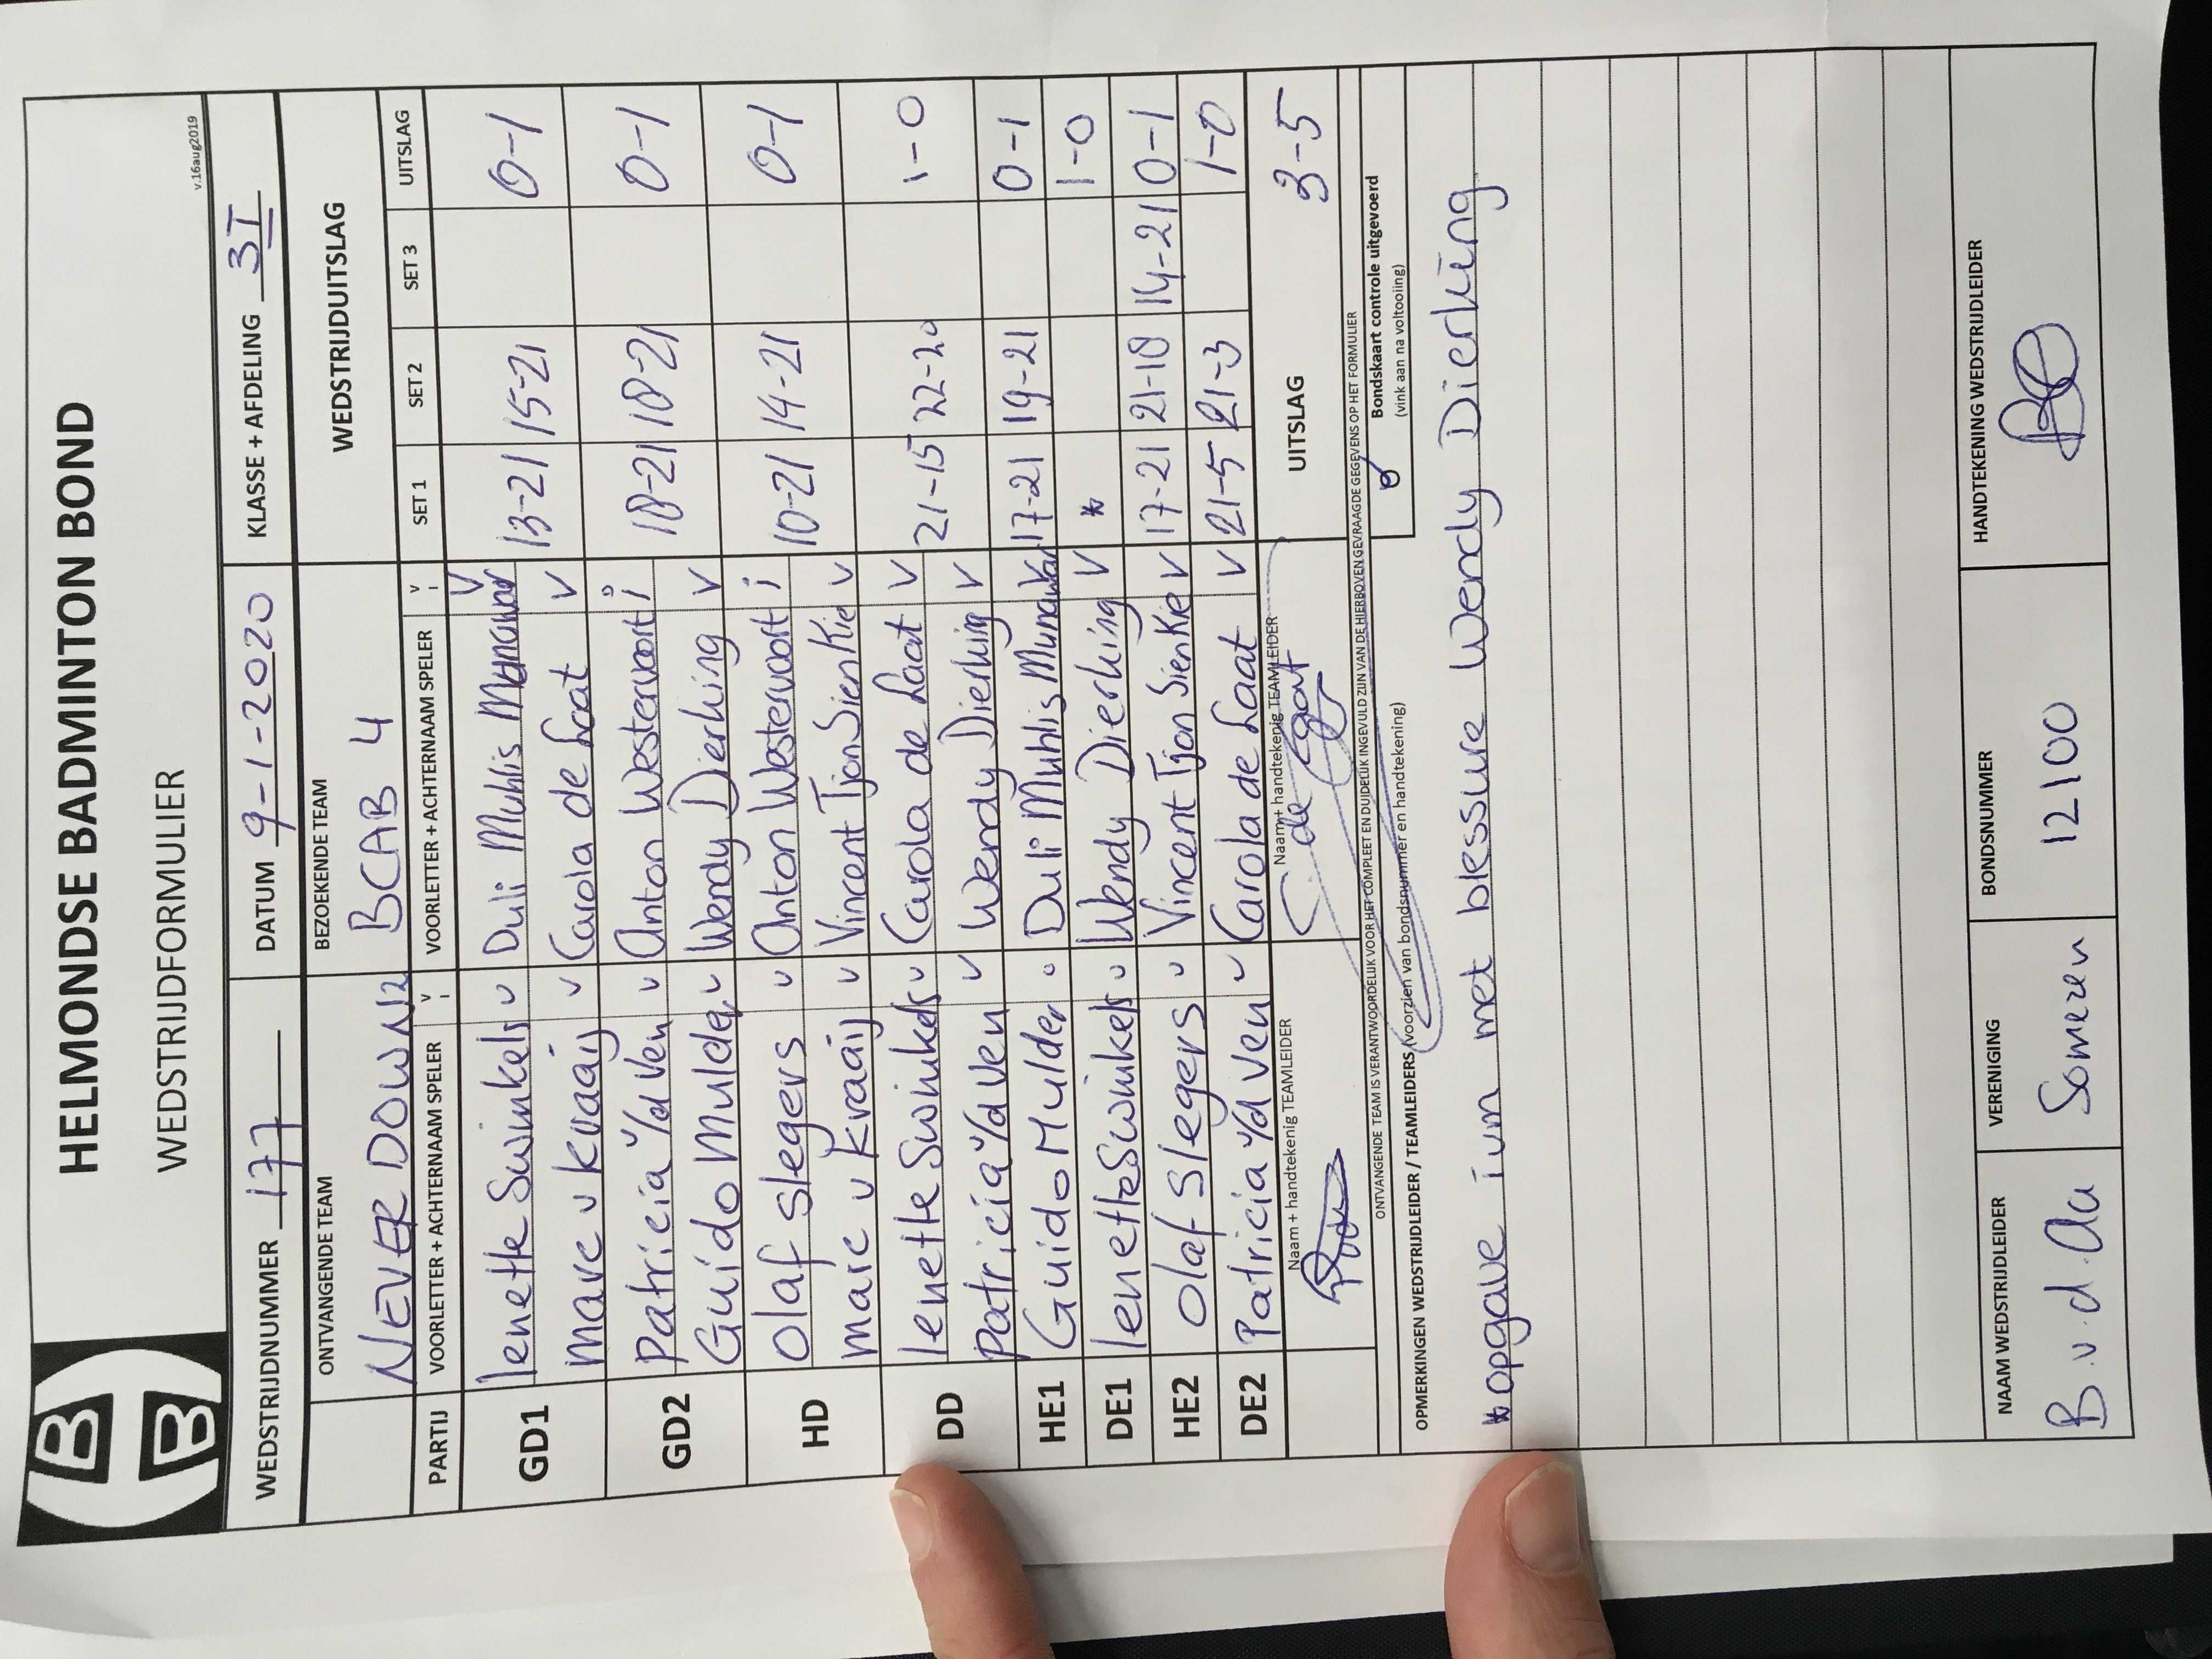 HELMONDSE BADMINTON BOND
WEDSTRIJDFORMULIER
v.16aug2019
WEDSTRIJDNUMMER 177 DATUM 9-1-2020 KLASSE + AFDELING 3I
ONTVANGENDE TEAM BEZOEKENDE TEAM WEDSTRIJDUITSLAG
NEVER DOWN 2 BCAB 4
PARTIJ VOORLETTER + ACHTERNAAM SPELER V I VOORLETTER + ACHTERNAAM SPELER V I SET 1 SET 2 SET 3 UITSLAG
GD1 Ienette Swinkels v Duli Muhlis Munawar V 13-21 15-21 0-1
Marc v Kraaij v Carola de Laat V
GD2 Patricia v/d Ven v Anton Westervoort i 18-21 18-21 0-1
Guido Mulder v Wendy Dierking V
HD Olaf Slegers v Anton Westervoort i 10-21 14-21 0-1
Marc v Kraaij v Vincent Tjon Sien Kie v
DD Ienette Swinkels v Carola de Laat V 21-15 22-20 1-0
Patricia v/d Ven v Wendy Dierking V
HE1 Guido Mulder v Duli Muhlis Munawar V 17-21 19-21 0-1
DE1 Ienette Swinkels v Wendy Dierking V * 1-0
HE2 Olaf Slegers v Vincent Tjon Sien Kie V 17-21 21-18 14-21 0-1
DE2 Patricia v/d Ven v Carola de Laat V 21-5 21-3 1-0
Naam + handtekenig TEAMLEIDER Naam + handtekenig TEAMLEIDER UITSLAG 3-5
C de Laat
ONTVANGENDE TEAM IS VERANTWOORDELIJK VOOR HET COMPLEET EN DUIDELIJK INGEVULD ZIJN VAN DE HIERBOVEN GEVRAAGDE GEGEVENS OP HET FORMULIER
OPMERKINGEN WEDSTRIJDLEIDER / TEAMLEIDERS (voorzien van bondsnummer en handtekening)
Bondskaart controle uitgevoerd
(vink aan na voltooiing)
* opgave ivm met blessure Wendy Dierking
NAAM WEDSTRIJDLEIDER VERENIGING BONDSNUMMER HANDTEKENING WEDSTRIJDLEIDER
B.v.d.Aa Someren 12100